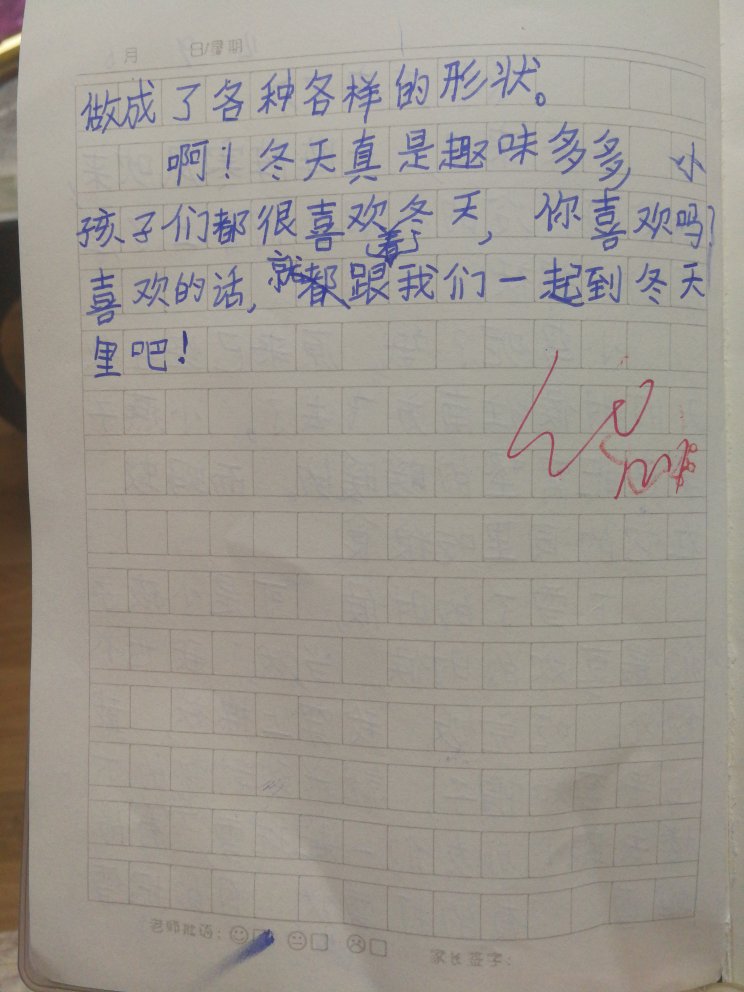 月 日/星期
做成了各种各样的形状。
啊！冬天真是趣味多多，小
孩子们都很喜欢冬天，你喜欢吗？
喜欢的话，就跟着我们一起到冬天
里吧！
老师批语：
家长签字：